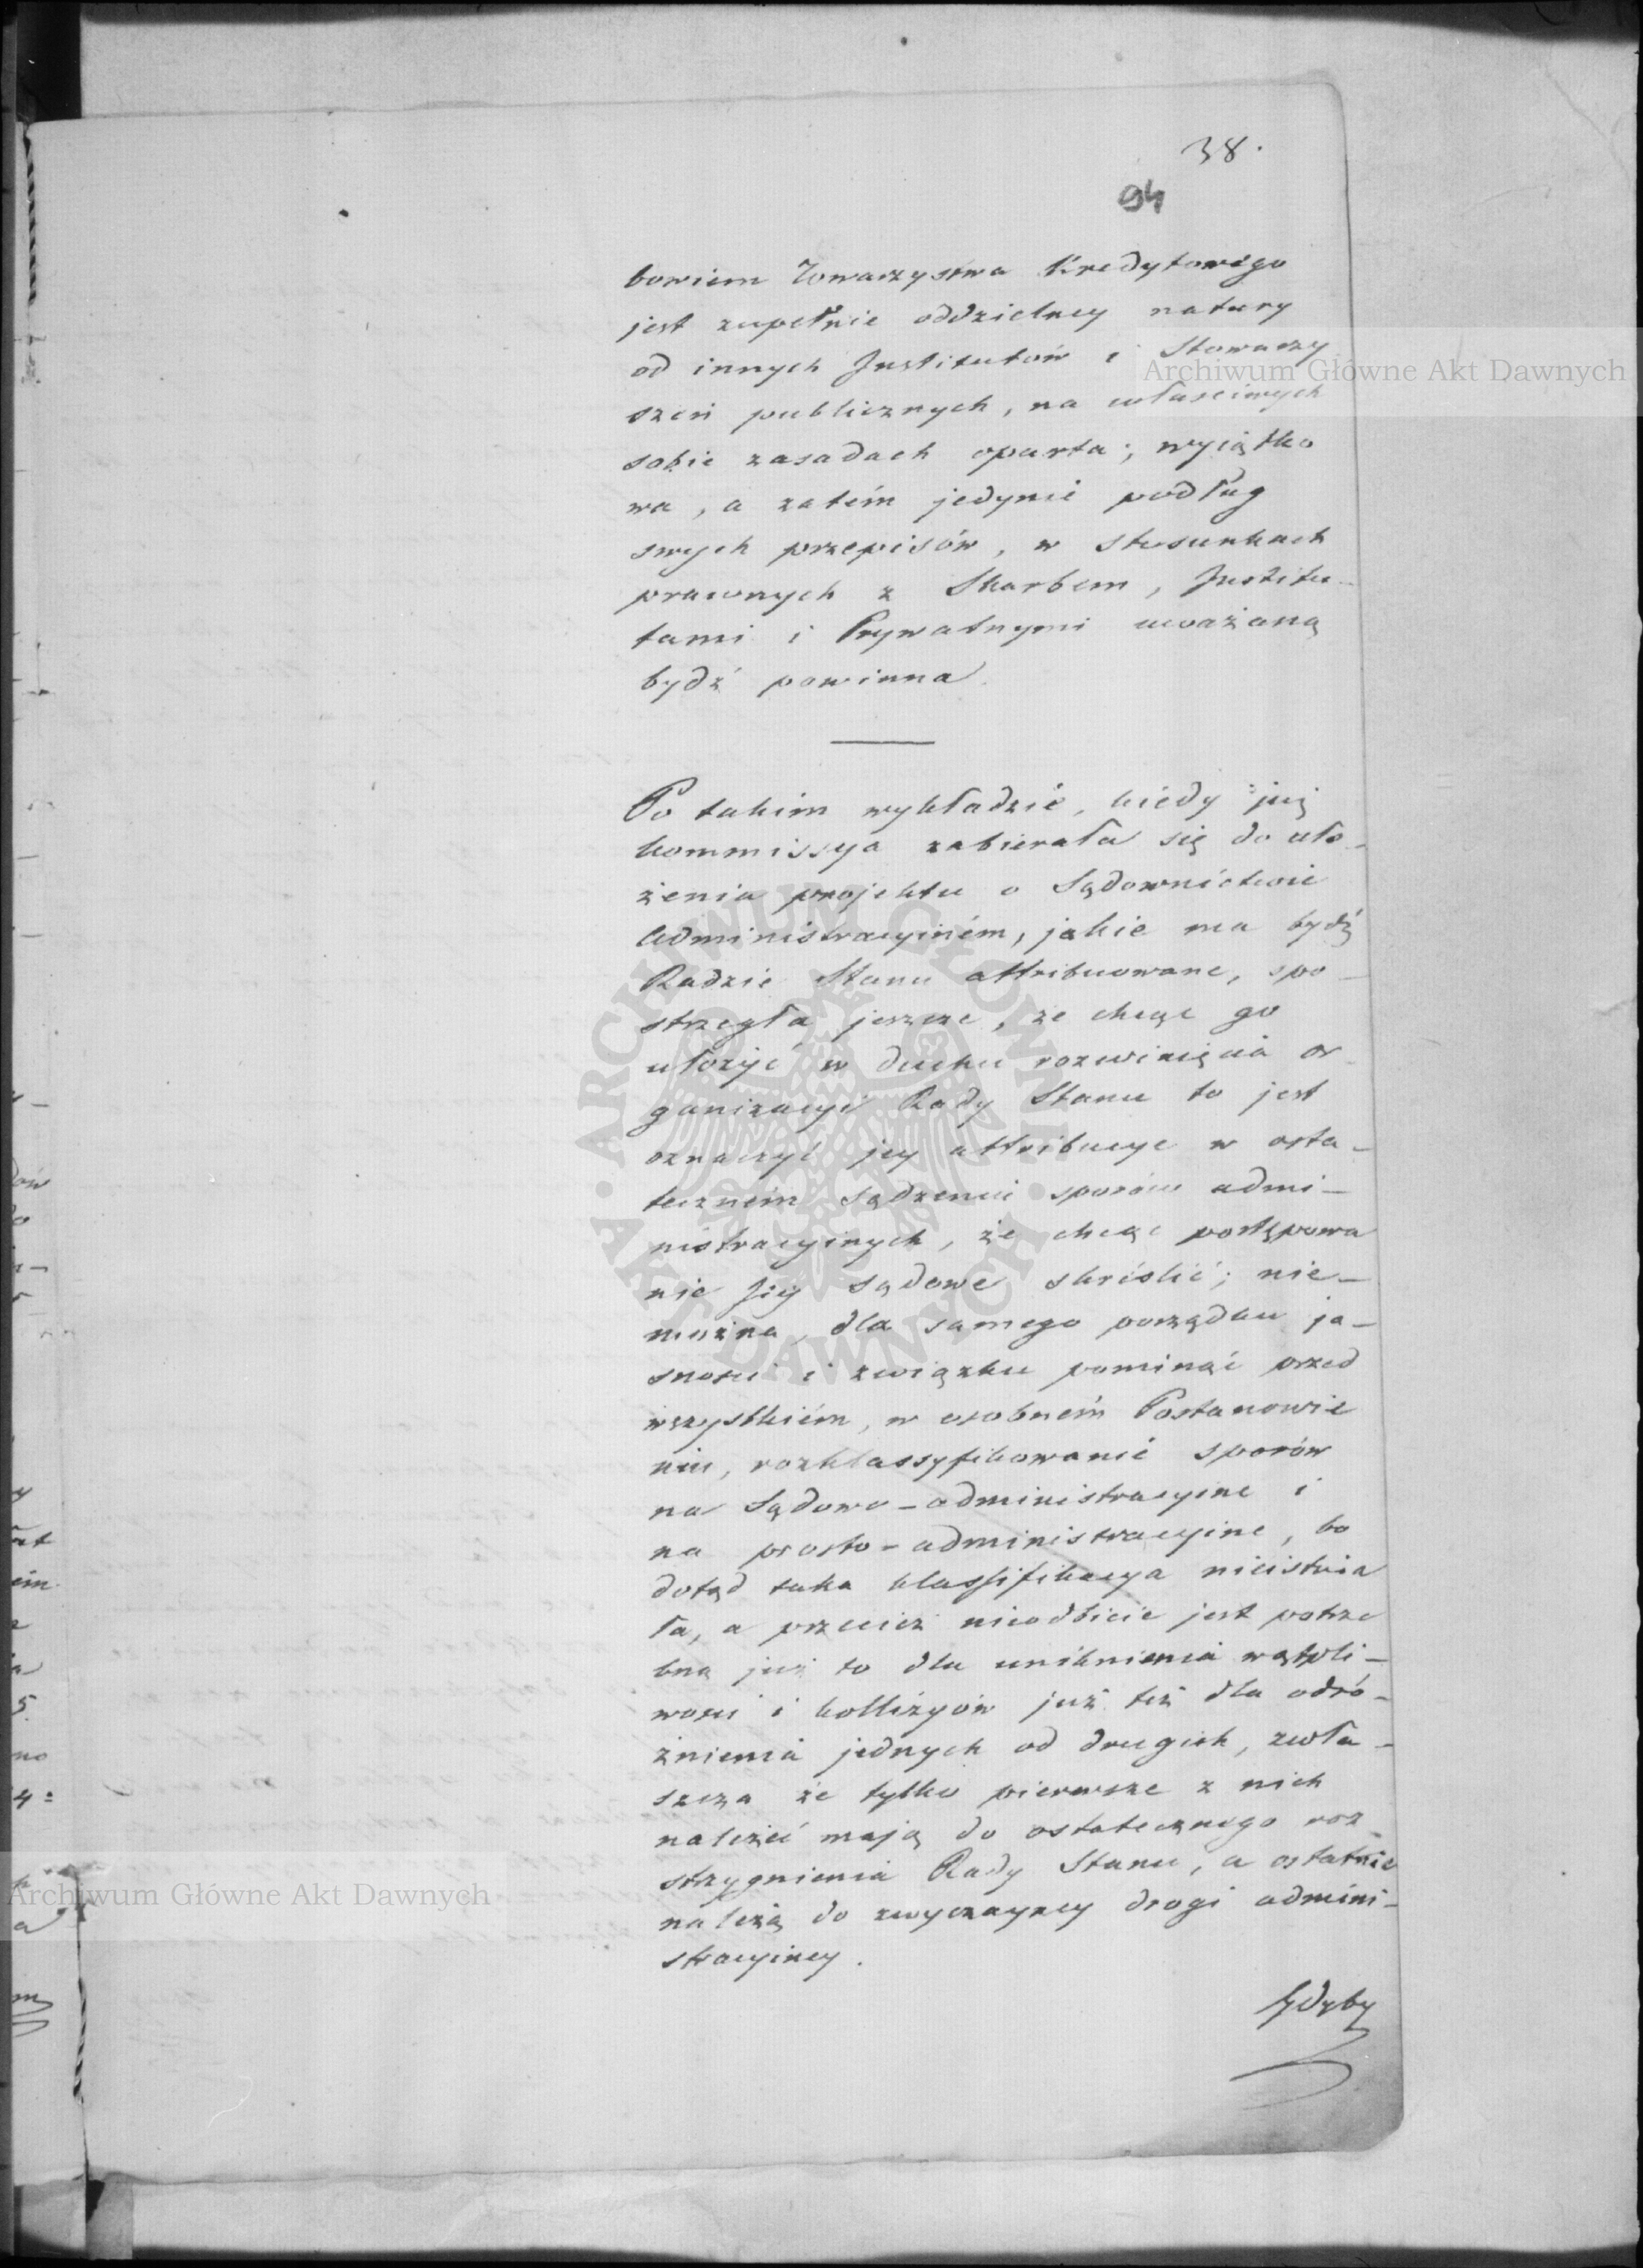 38.
94
bowiem Towarzystwa Kredytowego
jest zupełnie oddzielney natury
od innych Institutów i Stowarzy
szeń publicznych, na właściwych
sobie zasadach oparta; wyiątko
wa, a zatém jedynie podług
swych przepisów, w stosunkach
prawnych z Skarbem, Institu-
tami i Prywatnymi uważaną
bydź powinna
Po takim wykładzie, kiedy już
kommissya zabierała się do uło-
żenia projektu o Sądownictwie
Administracyiném, jakie ma bydź
Radzie Stanu attribuowane, spo-
strzegła jeszcze, że chcąc go
ułożyć w duchu rozwinięcia or
ganizacyi Rady Stanu to jest
oznaczyć jey attribucye w osta-
teczném sądzeniu sporów admi-
nistracyinych, że chcąc postępowa
nie Jey sądowe skréślić; nie-
można, dla samego porządku ja-
sności i związku pominąć przed
wszystkiém, w osobném Postanowie
niu, rozklassyfikowanie sporów
na Sądowo-administracyine i
na prosto-administracyine, bo
dotąd taka klassifikacya nieistnia
ła, a przecież nieodbicie jest potrze
bną już to dla uniknienia wątpli-
wości i kollizyów już też dla odró-
żnienia jednych od drugich, zwła-
szcza że tylko pierwsze z nich
należeć mają do ostatecznego roz-
strzygnienia Rady Stanu, a ostatnie
należą do zwyczayney drogi admini-
stracyiney.
Gdyby
Archiwum Główne Akt Dawnych
Archiwum Główne Akt Dawnych
ARCHIWUM GŁÓWNE · AKT DAWNYCH ·